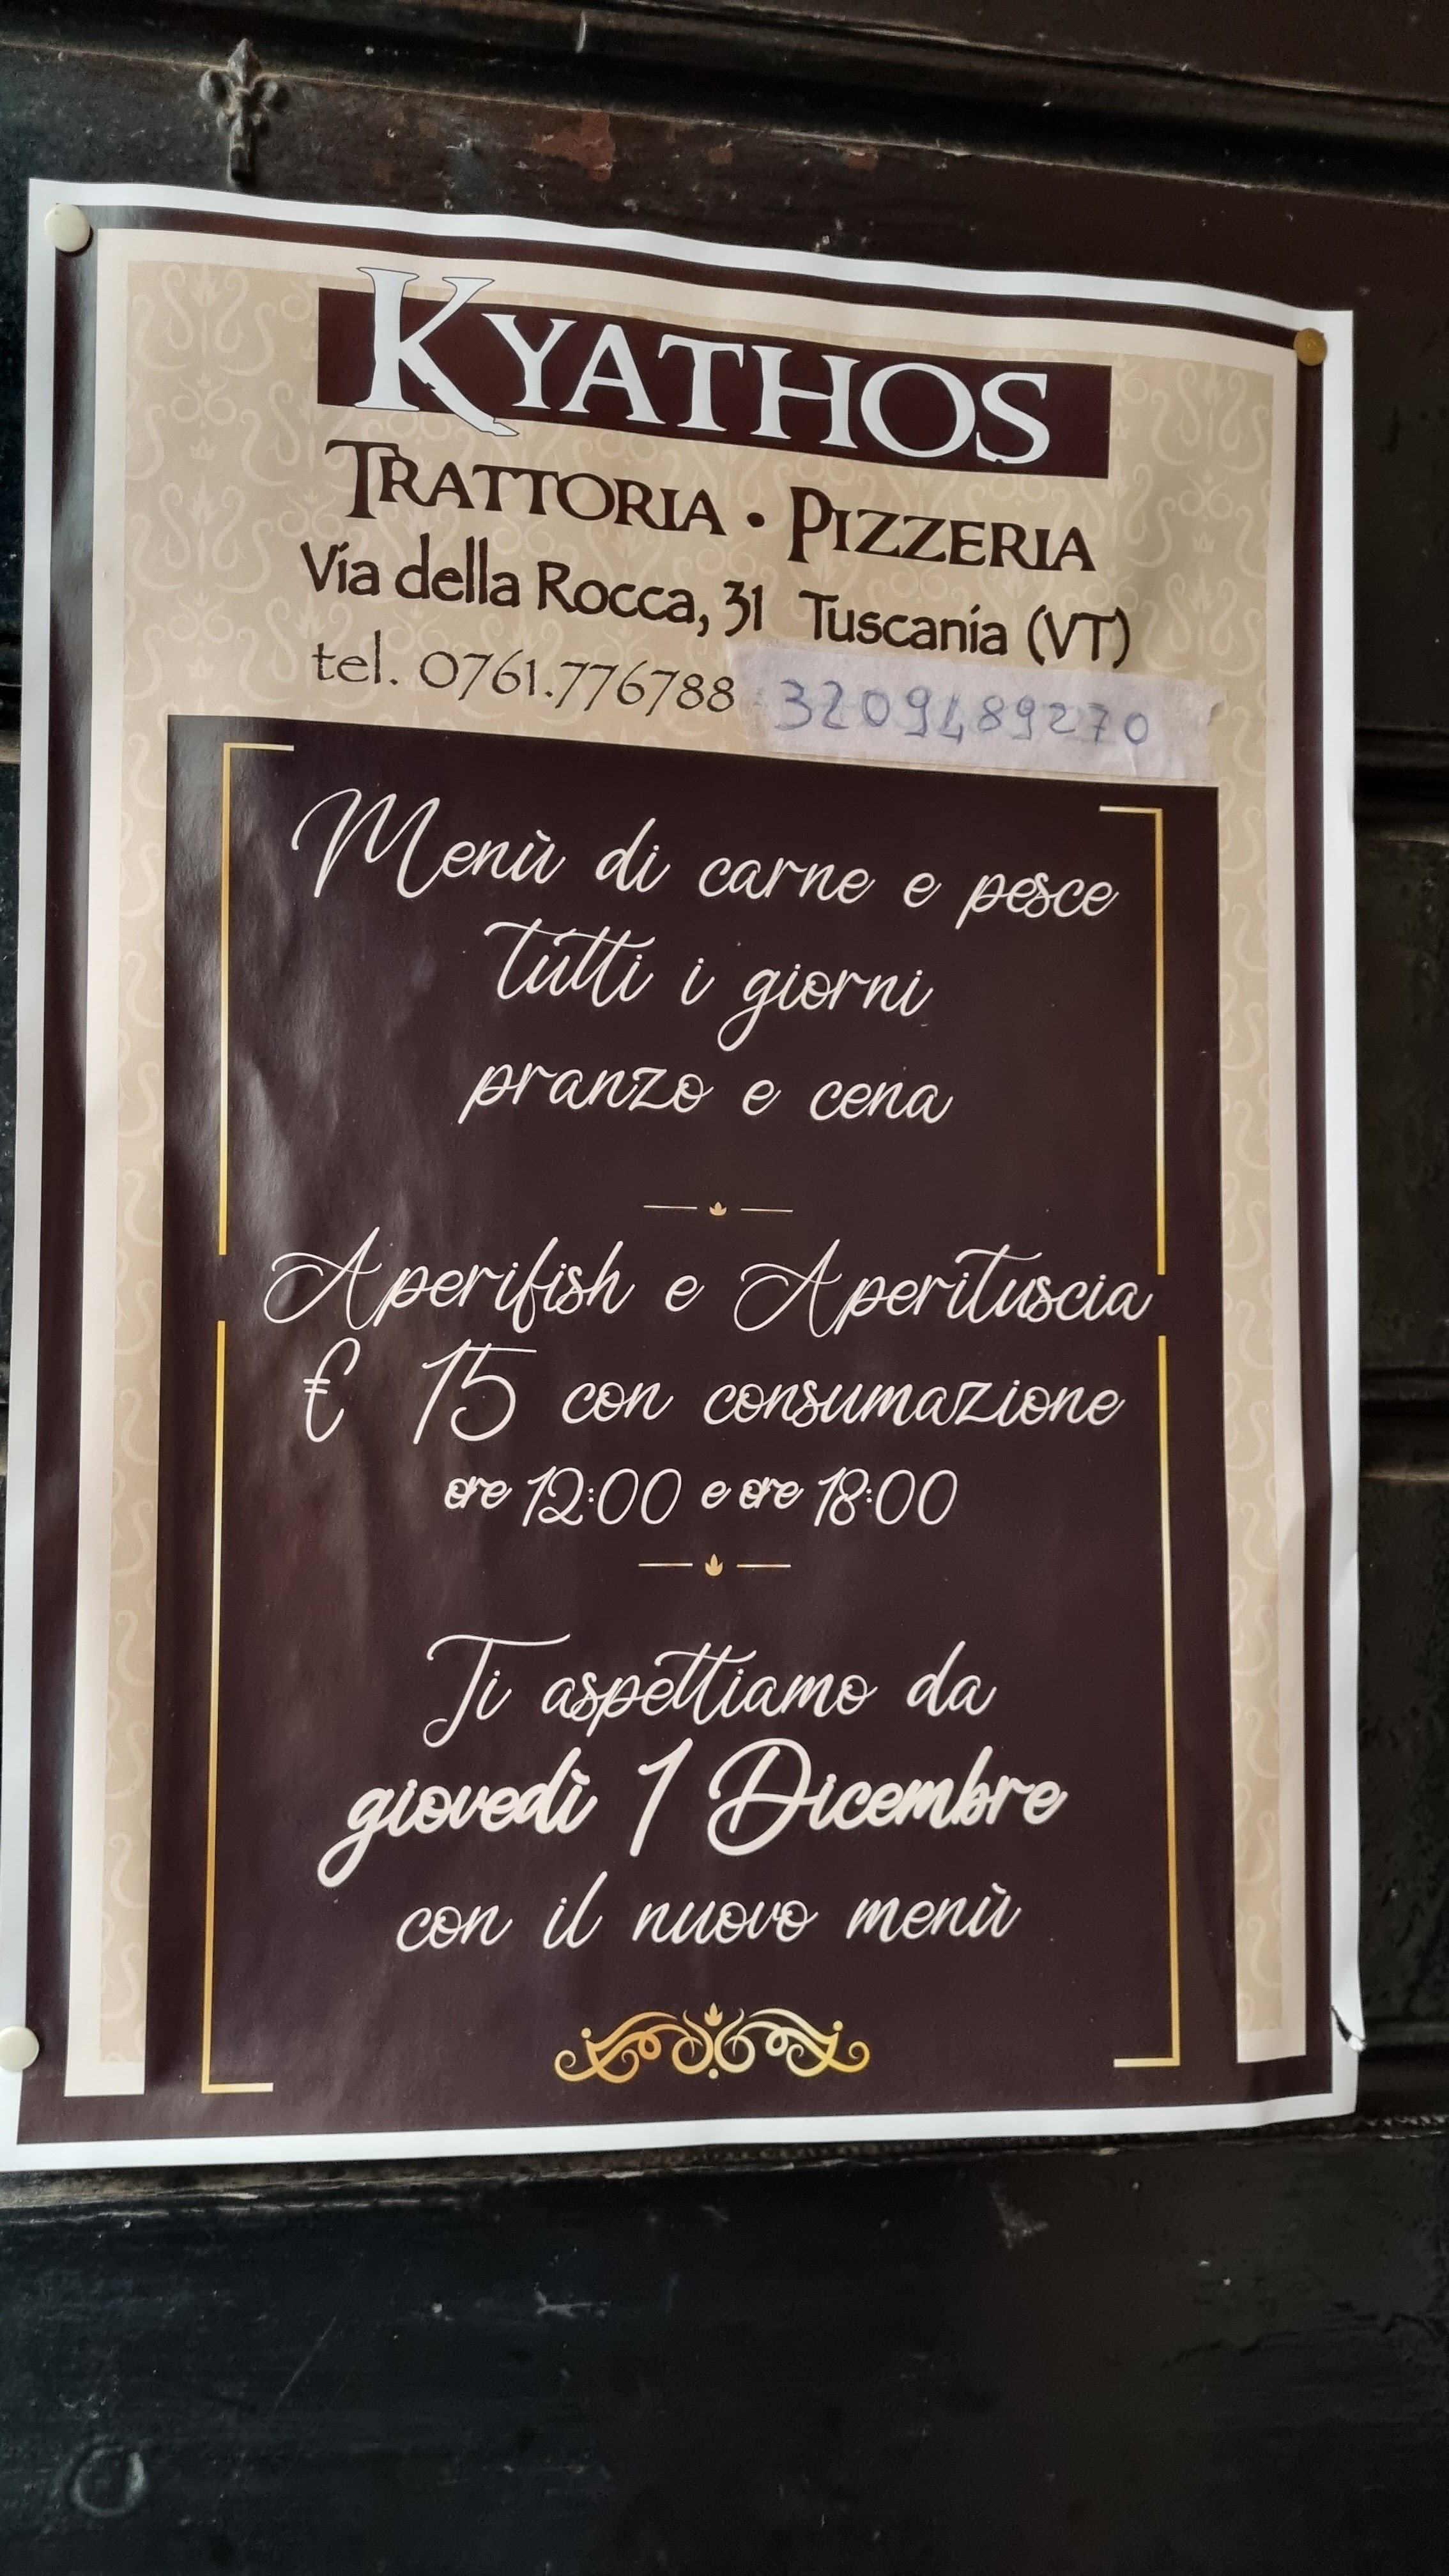 KYATHOS
TRATTORIA • PIZZERIA
Via della Rocca, 31 Tuscania (VT)
tel. 0761.776788 3209489270
Menù di carne e pesce
tutti i giorni
pranzo e cena
Aperifish e Aperituscia
€ 15 con consumazione
ore 12:00 e ore 18:00
Ti aspettiamo da
giovedì 1 Dicembre
con il nuovo menù